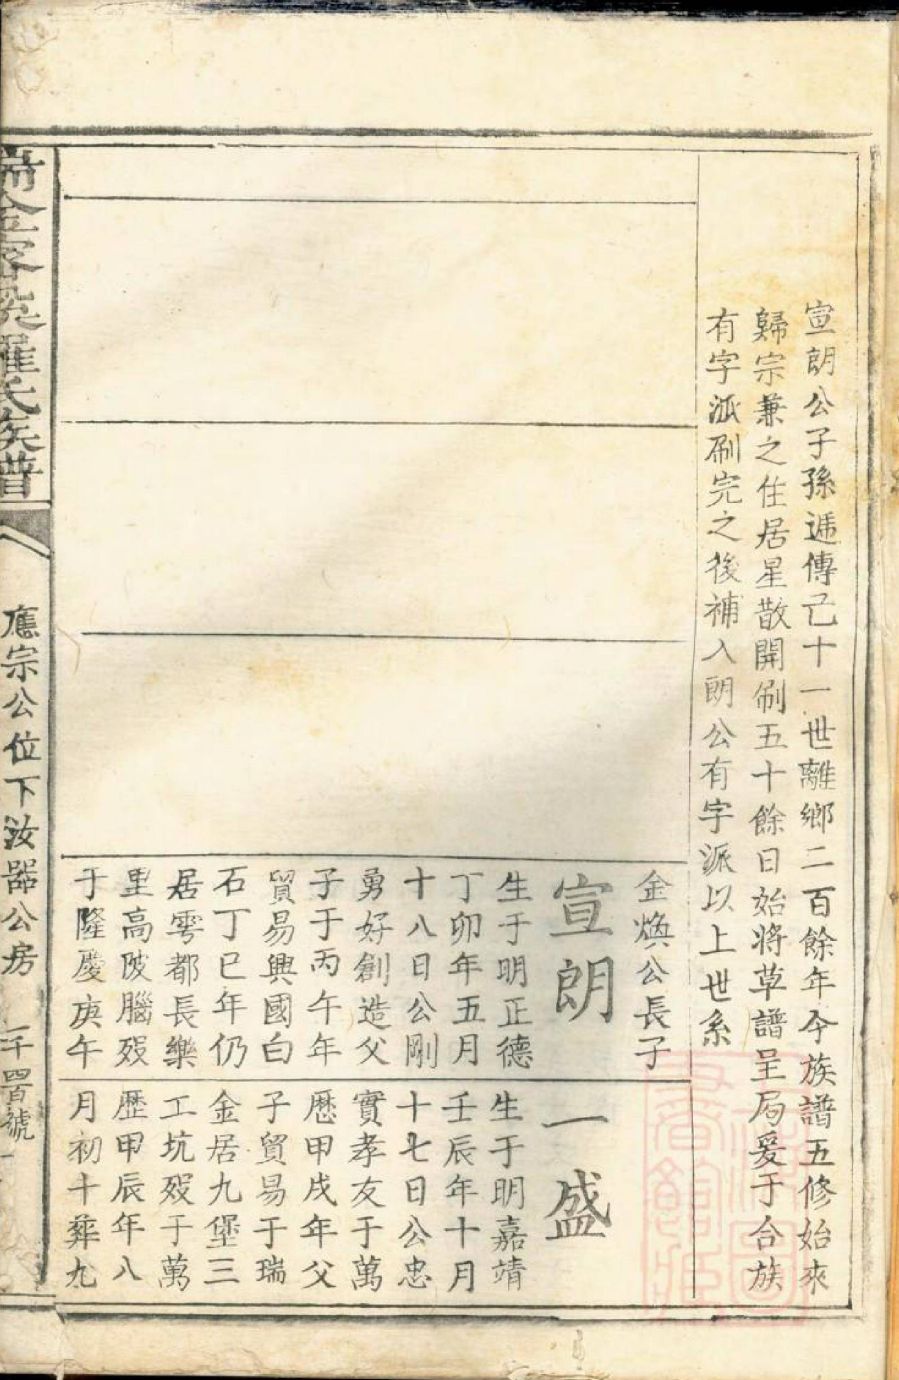 宣朗公子孫遞傳已十一世離鄉二百餘年今族譜五修始來
歸宗兼之住居星散開刷五十餘日始將草譜呈局爰于合族
有字派刷完之後補入朗公有字派以上世系
金煥公長子
宣朗
生于明正德
丁卯年五月
十八日公剛
勇好創造父
子于丙午年
貿易興國白
石丁巳年仍
居雩都長樂
里高陂腦歿
于隆慶庚午
一盛
生于明嘉靖
壬辰年十月
十七日公忠
實孝友于萬
歷甲戌年父
子貿易于瑞
金居九堡三
工坑歿于萬
歷甲辰年八
月初十葬九
羅氏族譜
應宗公位下汝器公房
一千四百號